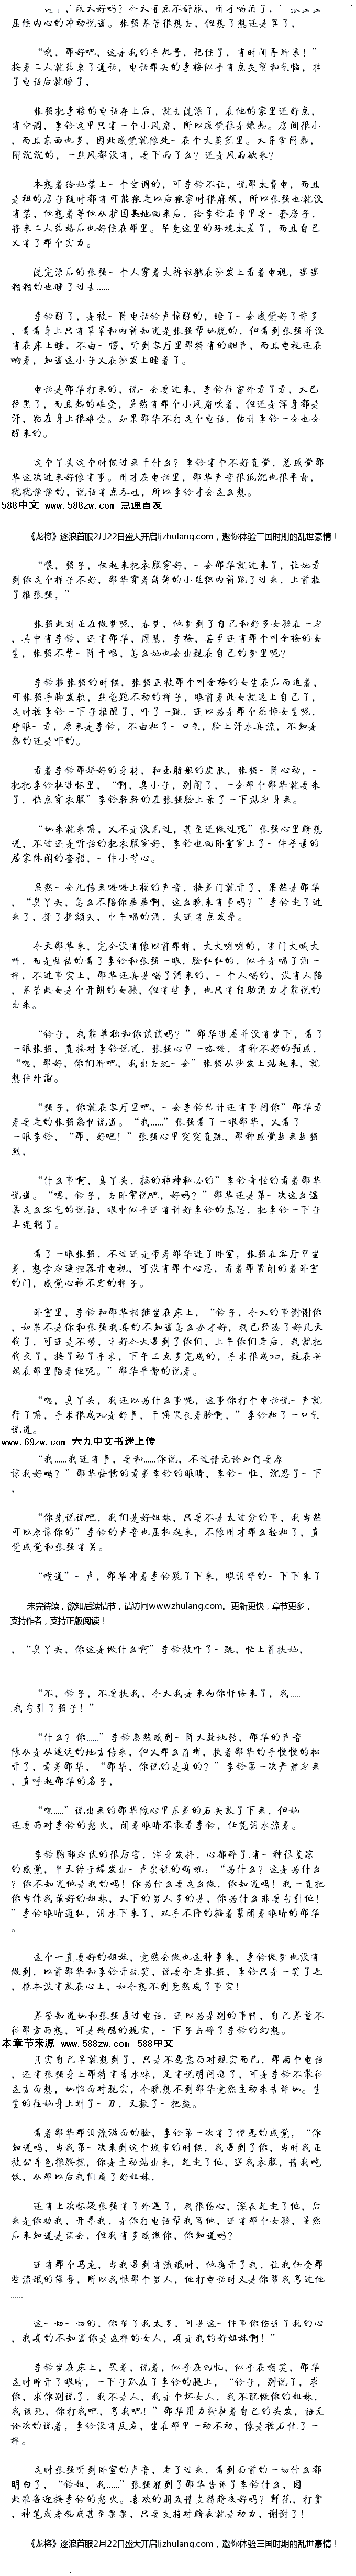 压住心的冲动说道。张强尽管很想去，但想了想还是算了，
“哦，那好吧，这是我的手机号，记住了，有时间再聊系！”
接着二人就结束了通话，电话那头的李梅似乎有点失望和气恼，挂
了电话后就睡了，
张强把李梅的电话存上后，就去洗漆了，在他的家里还好点，
有空调，李铃这里只有一个小风扇，所以感觉很是燥热。房间很小
，而且东西也多，因此感觉就像处一在个大蒸笼里。天异常闷热，
阴沉沉的，一丝风都没有，要下雨了么？还是风雨欲来？
本想着给她装上一个空调的，可李铃不让，说那太费电，而且
是租的房子随时都有可能搬走以后搬家时很麻烦，所以张强也就没
有装，他想着等他从护国基地回来后，给李铃在市里要一套房子，
将来二人结婚后也好住在那里。毕竟这里的环境太差了，而且自己
又有了那个实力。
洗完漆后的张强一个人穿着大裤衩躺在沙发上看着电视，迷迷
糊糊的也睡了过去……
李铃醒了，是被一阵电话铃声惊醒的，睡了一会感觉好了许多
，看看身上只有罩罩和内裤知道是张强帮她脱的，但看到张强并没
有在床上睡，不由一愣，听到客厅里那特有的酣声，而且电视还在
响着，知道这小子又在沙发上睡着了。
电话是邵华打来的，说一会要过来，李铃往窗外看了看，天已
经黑了，而且热的难受，虽然有那个小风扇吹着，但还是浑身都是
汗，粘在身上很难受。如果邵华不打这个电话，估计李铃一会也会
醒来的。
这个丫头这个时候过来干什么？李铃有个不好直觉，总感觉邵
华这次过来好像有事。刚才在电话里，邵华声音很低沉也很平静，
犹犹豫豫的，说话有点吞吐，所以李铃才会这么想。
588中文 www.588zw.com 急速首发
《龙将》逐浪首服2月22日盛大开启lj.zhulang.com，邀你体验三国时期的乱世豪情！
“喂，强子，快起来把衣服穿好，一会邵华就过来了，让她看
到你这个样子不好，邵华穿着薄薄的小丝织内裤跑了过来，上前推
了推张强，”
张强此刻正在做梦呢，春梦，他梦到了自己和好多女孩在一起
，其中有李铃，还有邵华，周慧，李梅，甚至还有那个叫金梅的女
生，张强不禁一阵干呕，怎么她也会出现在自己的梦里呢？
李铃推张强的时候，张强正被那个叫金梅的女生在后面追着，
可张强手脚发软，丝毫跑不动的样子，眼前着此女就追上自己了，
这时被李铃一下子推醒了，吓了一跳，还以为是那个恐怖女生呢，
睁眼一看，原来是李铃，不由松了一口气，脸上汗水直流，不知是
热的还是吓的。
看着李铃那娇好的身材，和玉脂般的皮肤，张强一阵心动，一
把把李铃扯进怀里，“啊，臭小子，别闹了，一会那个邵华就要来
了，快点穿衣服”李铃轻轻的在张强脸上亲了一下站起身来。
“她来就来嘛，又不是没见过，甚至还做过呢”张强心里瞎想
道，不过还是听话的把衣服穿好，李铃也回卧室穿上了一件普通的
居家休闲的套裙，一件小背心。
果然一会儿传来噔噔上楼的声音，接着门就开了，果然是邵华
，“臭丫头，怎么不陪你弟弟啊，这么晚来有事吗？”李铃走了过
来了，揉了揉额头，中午喝的酒，头还有点发晕。
今天邵华来，完全没有像以前那样，大大咧咧的，进门大喊大
叫，而是怯怯的看了李铃和张强一眼，脸红红的，似乎是喝了酒一
样，不过事实上，邵华还真是喝了酒来的，一个人喝的，没有人陪
，尽管此女是个开朗的女孩，但有些事，也只有借助酒力才能说的
出来。
“铃子，我能单独和你谈谈吗？”邵华进屋并没有坐下，看了
一眼张强，直接对李铃说道，张强心里一咯噔，有种不好的预感，
“嗯，那好，你们聊吧，我出去玩一会”张强从沙发上站起来，就
想往外溜。
“强子，你就在客厅里吧，一会李铃估计还有事问你”邵华看
着要走的张强忽忙说道。“我……”张强看了一眼邵华，又看了
一眼李铃，“那，好吧！”张强心里突突直跳，那种感觉越来越强
烈，
“什么事啊，臭丫头，搞的神神秘必的”李铃奇怪的看着邵华
说道。“嗯，铃子，去卧室说吧，好吗？”邵华还是第一次这么温
柔这么客气的说话，眼中似乎还有讨好李铃的意思，把李铃一下子
弄迷糊了。
看了一眼张强，不过还是带着邵华进了卧室，张强在客厅里坐
着，想拿起遥控器开电视，可没有那个心思，看着那紧闭的着卧室
的门，感觉心神不定的样子。
卧室里，李铃和邵华相继坐在床上，“铃子，今天的事谢谢你
，如果不是你和张强我真的不知道怎么办才好，我已经凑了好几天
钱了，可还是不够，幸好今天遇到了你们，上午你们走后，我就把
钱交了，接了动了手术，下午三点多完成的，手术很成功，现在爸
妈在那里陪着他呢。”邵华平静的说着。
“嗯，臭丫头，我还以为什么事呢，这事你打个电话说一声就
行了嘛，手术很成功是好事，干嘛哭丧着脸啊，”李铃松了一口气
说道。
www.69zw.com 六九中文书迷上传
“我……我还有事，要和……你说，不过请无论如何要原
谅我好吗？”邵华怯懦的看着李铃的眼睛，李铃一怔，沉思了一下
，
“你先说说吧，我们是好姐妹，只要不是太过分的事，我当然
可以原谅你的”李铃的声音也压抑起来，不像刚才那么轻松了，直
觉感觉和张强有关。
“噗通”一声，邵华冲着李铃跪了下来，眼泪哗的一下下来了
未完待续，欲知后续情节，请访问www.zhulang.com。更新更快，章节更多，
支持作者，支持正版阅读！
，“臭丫头，你这是做什么啊”李铃被吓了一跳，忙上前扶她，
“不，铃子，不要扶我，今天我是来向你忏悔来了，我……
.我勾引了强子！”
“什么？你……”李铃忽然感到一阵天敖地转，邵华的声音
像从是从遥远的地方传来，但又那么清晰，扶着邵华的手慢慢的松
开了，看着邵华，“邵华，你说的是真的？”李铃第一次严肃起来
，直呼起邵华的名子，
“嗯……”说出来的邵华像心里压着的石头放了下来，但她
还要面对李铃的怒火，闭着眼睛不敢看李铃，任凭泪水流着。
李铃胸部起伏的很厉害，浑身发抖，心都碎了.有一种很荒凉
的感觉，半天终于爆发出一声尖锐的嘶吼：“为什么？这是为什么
？你不知道他是我的吗！你为什么要这么做，你知道吗！我一直把
你当作我最好的姐妹，天下的男人多的是，你为什么非要勾引他！
”李铃眼睛通红，泪水下来了，双手不停的摇着紧闭着眼睛的邵华
。
这个一直要好的姐妹，竟然会做也这种事来，李铃做梦也没有
做到，以前邵华和李铃开玩笑，说要夺走张强，李铃只是一笑了之
，根本没有放在心上，如今想不到竟然成了事实！
尽管知道她和张强通过电话，还以为是别的事情，自己尽量不
往那方面想，可是残酷的现实，一下子击碎了李铃的幻想。
本章节来源 www.588zw.com 588中文
其实自己早就想到了，只是不愿意面对现实而已，那两个电话
，还有张强身上那特有香水味，足有说明问道了，可是李铃不敢往
这方面想，她怕面对现实，今晚想不到邵华竟然主动来告诉她。生
生的往她身上刺了一刀，又撒了一把盐。
看着邵华那泪流满面的脸，李铃第一次有了憎恶的感觉，“你
知道吗，当我第一次来到这个城市的时候，我遇到了你，当时我正
被公车色狼骚扰，你是主动站出来，赶走了他，送我衣服，请我吃
饭，从那以后我们成了好姐妹，
还有上次怀疑张强有了外遇了，我很伤心，深夜赶走了他，后
来是你劝我，开导我，是你打电话帮我骂他，还有那个女孩，虽然
后来知道是误会，但我有多感激你，你知道吗？
还有那个马龙，当我遇到有流氓时，他离开了我，让我任受那
些流氓的侮辱，所以我恨那个男人，他打电话时又是你帮我骂过他
……
这一切一切的，你帮了我太多，可是这一件事你伤透了我的心
，我真的不知道你是这样的女人，真是我的好姐妹啊！”
李铃坐在床上，哭着，说着，似乎在回忆，似乎在嘲笑，邵华
这时睁开了眼睛，一下子趴在了李铃的腿上，“铃子，别说了，求
你，求你别说了，我不是人，我是个坏女人，我不配做你的姐妹，
我该死，你打我吧，骂我吧！”邵华用力撕扯着自己的头发，语无
伦次的说着，李铃没有反应，坐在那里一动不动，像是被石化了一
样。
这时张强听到卧室的声音，走了过来，看到面前的一切什么都
明白了，“铃姐，我……”张强猜到了邵华告诉了李铃什么，因
此准备迎接李铃的怒火。喜欢的朋友请支持醉夜好吗？鲜花，打赏
，神笔或者钻戒甚至票票，只要支持对醉夜就是动力，谢谢了！
《龙将》逐浪首服2月22日盛大开启lj.zhulang.com，邀你体验三国时期的乱世豪情！